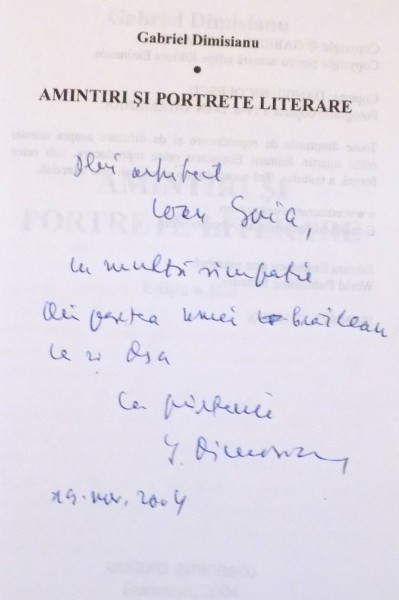 Gabriel Dimisianu
•
AMINTIRI ȘI PORTRETE LITERARE
Dlui arhitect
Ioan
cu multă simpatie
din partea unui brăilean
ca și Dsa
Cu prietenie
G. Dimisianu
19. nov. 2004